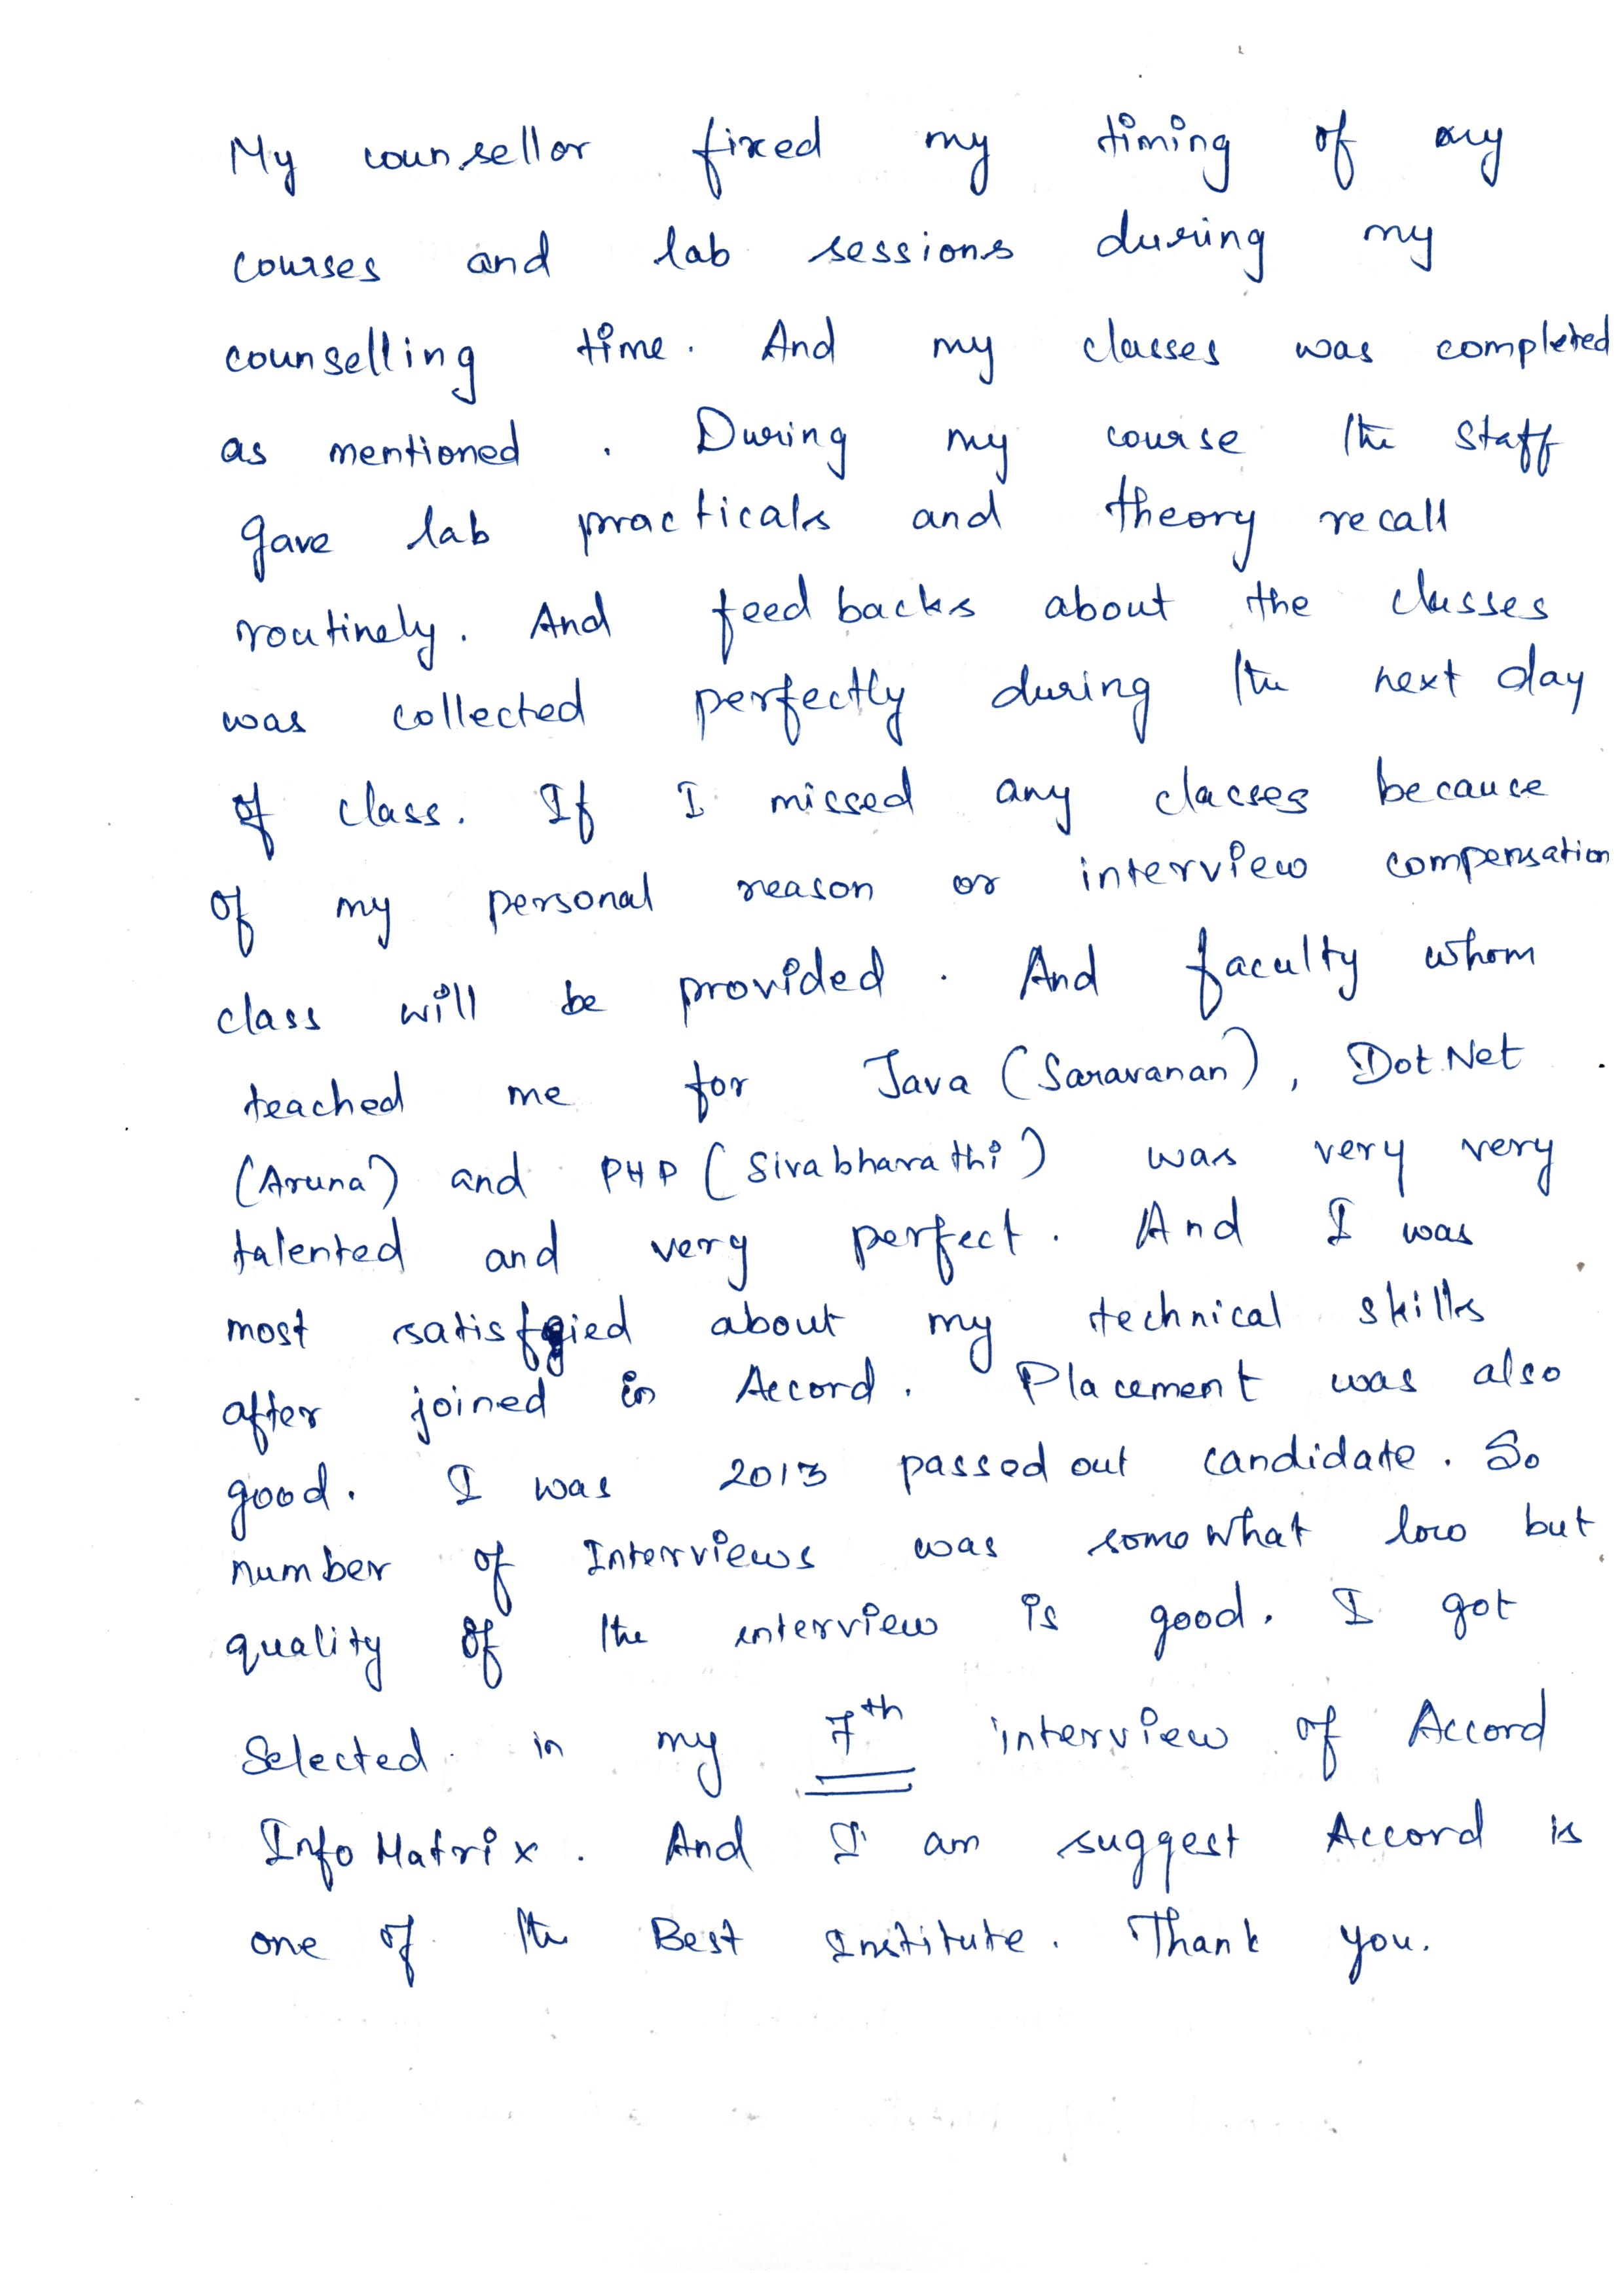 My counsellor fixed my timing of my
courses and lab sessions during my
counselling time. And my classes was completed
as mentioned. During my course the staff
gave lab practicals and theory recall
routinely. And feed backs about the classes
was collected perfectly during the next day
of class. If I missed any classes because
of my personal reason or interview compensation
class will be provided. And faculty whom
teached me for Java (Saravanan), Dot Net
(Aruna) and PHP (Sivabharathi) was very very
talented and very perfect. And I was
most satisfied about my technical skills
after joined in Accord. Placement was also
good. I was 2013 passed out candidate. So
number of Interviews was somewhat low but
quality of the interview is good. I got
Selected in my 7th interview of Accord
Info Matrix. And I am suggest Accord is
one of the Best Institute. Thank you.